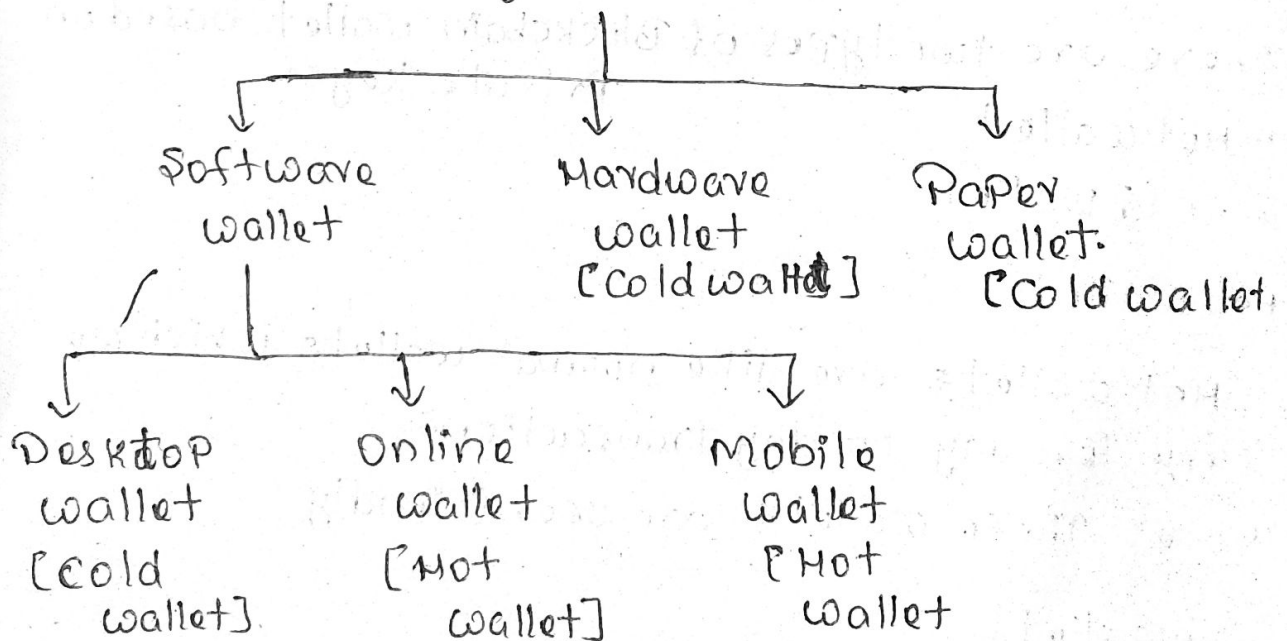 Software
wallet
Hardware
wallet
[Cold wallet]
Paper
wallet.
[Cold wallet
Desktop
wallet
[Cold
wallet]
Online
wallet
[Hot
wallet]
Mobile
wallet
[Hot
wallet